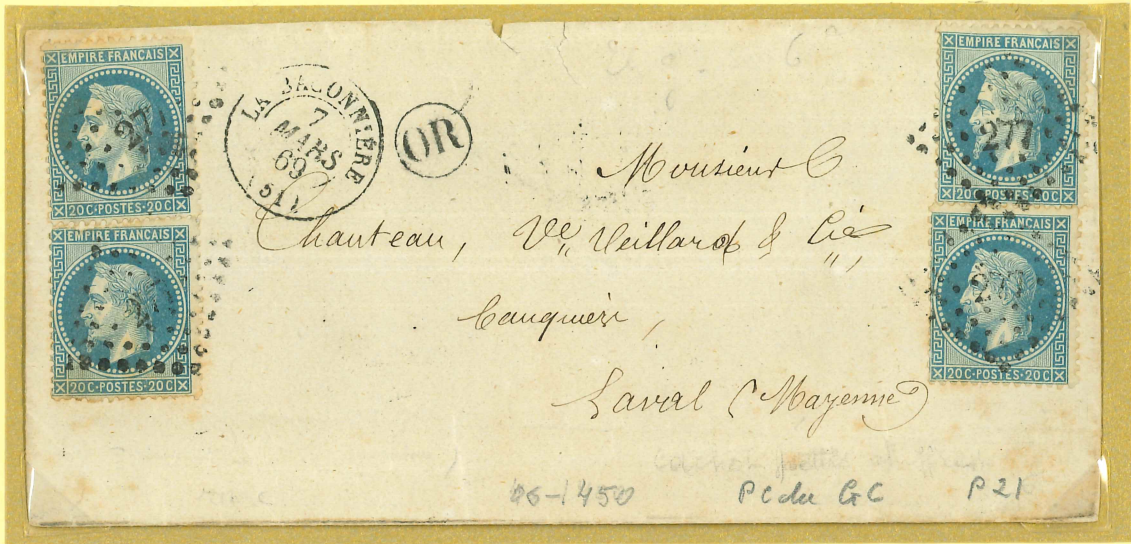 EMPIRE FRANÇAIS
277
20 C·POSTES·20 C
EMPIRE FRANÇAIS
20 C·POSTES·20 C
LA BACONNIÈRE
7
MARS
69
(51)
OR
EMPIRE FRANÇAIS
277
20 C·POSTES·20 C
EMPIRE FRANÇAIS
277
20 C·POSTES·20 C
Monsieur C
Chanteau, Ve Veillard & Cie,
banquiers,
Laval (Mayenne)
06-1450 PC du GC P21